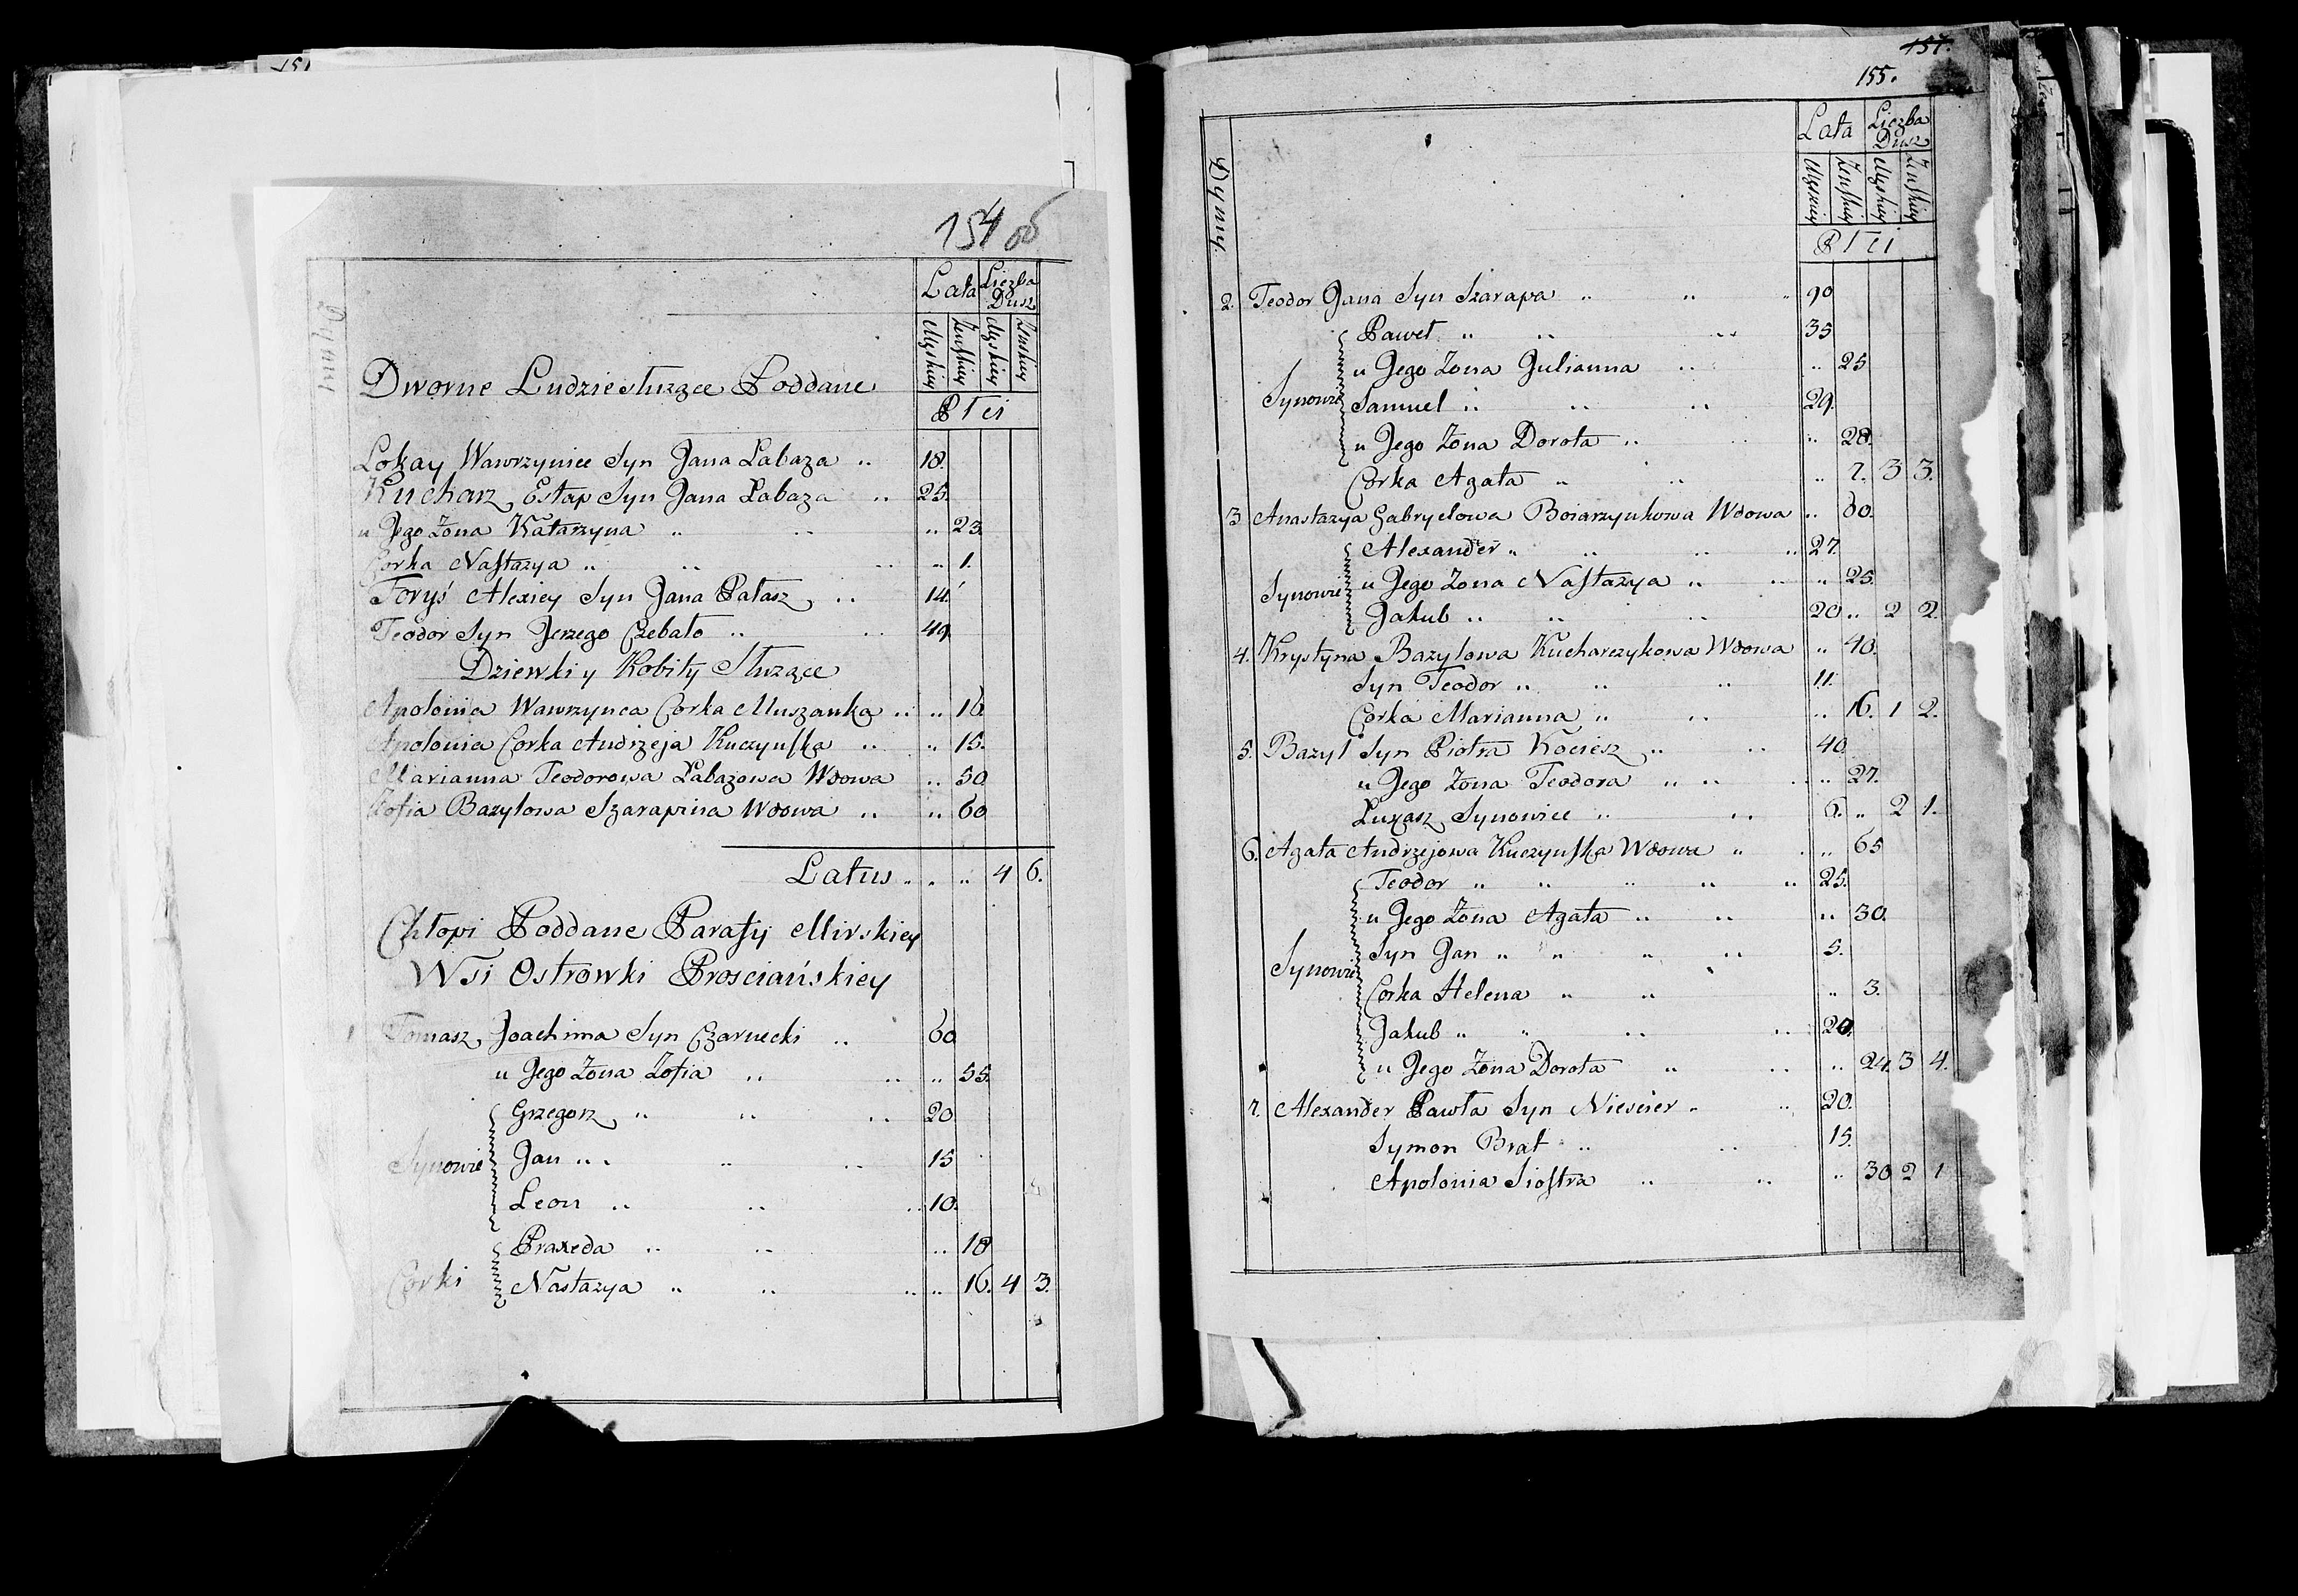 151
154 об
Dymy
Lata Liczba Dusz
Męskiey Zenskiey Męskiey Zenskiey
Płci
Dworne Ludzie służące Poddane
Lokay Wawrzyniec Syn Jana Łabaza .. 18.
Kucharz Estap Syn Jana Łabaza .. 25.
u Jego Zona Katarzyna .. .. .. 23.
Corka Nastazya .. .. .. .. 1.
Foryś Alexiey Syn Jana Pałasz .. 14.
Teodor Syn Jerzego Czebato .. .. 49.
Dziewki y Kobity Służące
Apolonia Wawrzynca Corka Muszanka .. .. 16.
Apolonia Corka Andrzeja Kuczynska .. .. 15.
Marianna Teodorowa Łabazowa Wdowa .. 50.
Zofia Bazylowa Szarapina Wdowa .. .. 60
Latus .. .. .. 4 6.
Chłopi Poddane Parafij Mirskiey
Wsi Ostrowki Prosciańskiey
1 Tomasz Joachima Syn Czarnecki .. 60
u Jego Zona Zofia .. .. .. 55.
Grzegorz .. .. .. 20
Synowie Jan .. .. .. 15
Leon .. .. .. 10.
Praxeda .. .. .. 18
Corki Nastazya .. .. .. .. 16. 4 3.
157.
155.
Dymy.
Lata Liczba Dusz
Męskiey Zenskiey Męskiey Zenskiey
Płci
2. Teodor Jana Syn Szarapa .. .. .. 90
Paweł .. .. .. 35
u Jego Zona Julianna .. .. 25
Synowie Samuel .. .. .. 29.
u Jego Zona Dorota .. .. 28.
Corka Agata .. .. .. 7. 3 3.
3 Anastazya Gabryelowa Boiarzynkowa Wdowa .. 60.
Alexander .. .. .. .. 27.
Synowie u Jego Zona Nastazya .. .. .. 25.
Jakub .. .. .. 20 .. 2 2.
4. Krystyna Bazylowa Kucharczykowa Wdowa .. 40.
Syn Teodor .. .. .. 11.
Corka Marianna .. .. .. 16. 1 2.
5. Bazyl Syn Piotra Kociesz .. .. 40.
u Jego Zona Teodora .. .. .. .. 27.
Łukasz Synowiec .. .. 6. .. 2 1.
6. Agata Andrzejowa Kuczynska Wdowa .. .. .. 65
Teodor .. .. .. .. .. 25.
u Jego Zona Agata .. .. .. 30.
Synowie Syn Jan .. .. .. .. 5.
Corka Helena .. .. .. 3.
Jakub .. .. .. .. 20.
u Jego Zona Dorota .. .. .. 24. 3 4.
7. Alexander Pawła Syn Niescier .. .. 20.
Symon Brat .. .. 15.
Apolonia Siostra .. .. .. 30 2 1